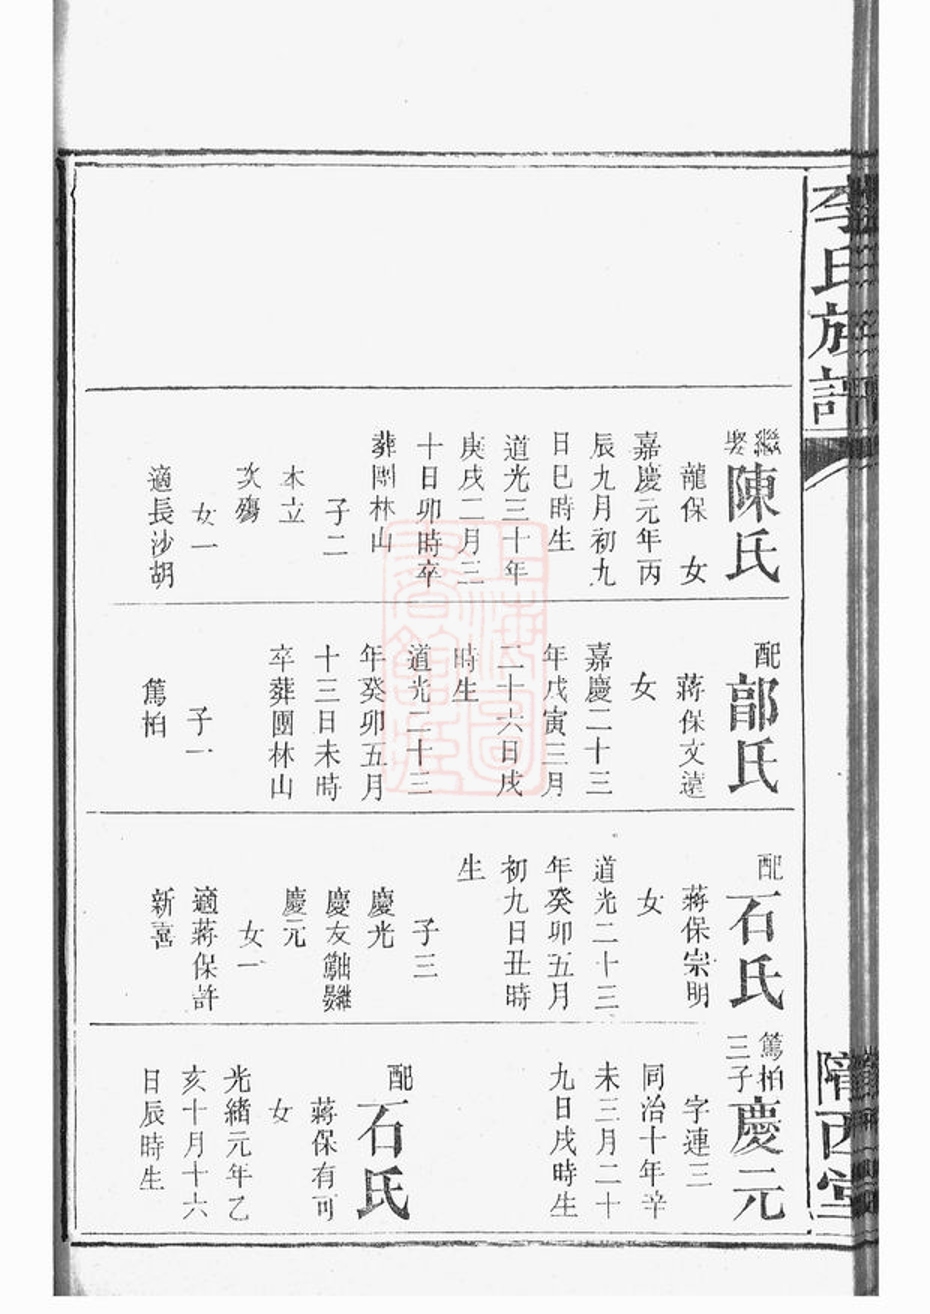 李氏族譜
繼娶陳氏
龍保 女
嘉慶元年丙
辰九月初九
日巳時生
道光三十年
庚戌二月三
十日卯時卒
葬團林山
子二
本立
次殤
女一
適長沙胡
配郭氏
蔣保文達
女
嘉慶二十三
年戊寅三月
二十六日戌
時生
道光二十三
年癸卯五月
十三日未時
卒葬團林山
子一
篤柏
配石氏
蔣保崇明
女
道光二十三
年癸卯五月
初九日丑時
生
子三
慶光
慶友
慶元
女一
適蔣保許
新喜
篤柏三子慶元
字連三
同治十年辛
未三月二十
九日戌時生
配石氏
蔣保有可
女
光緒元年乙
亥十月十六
日辰時生
隴西堂